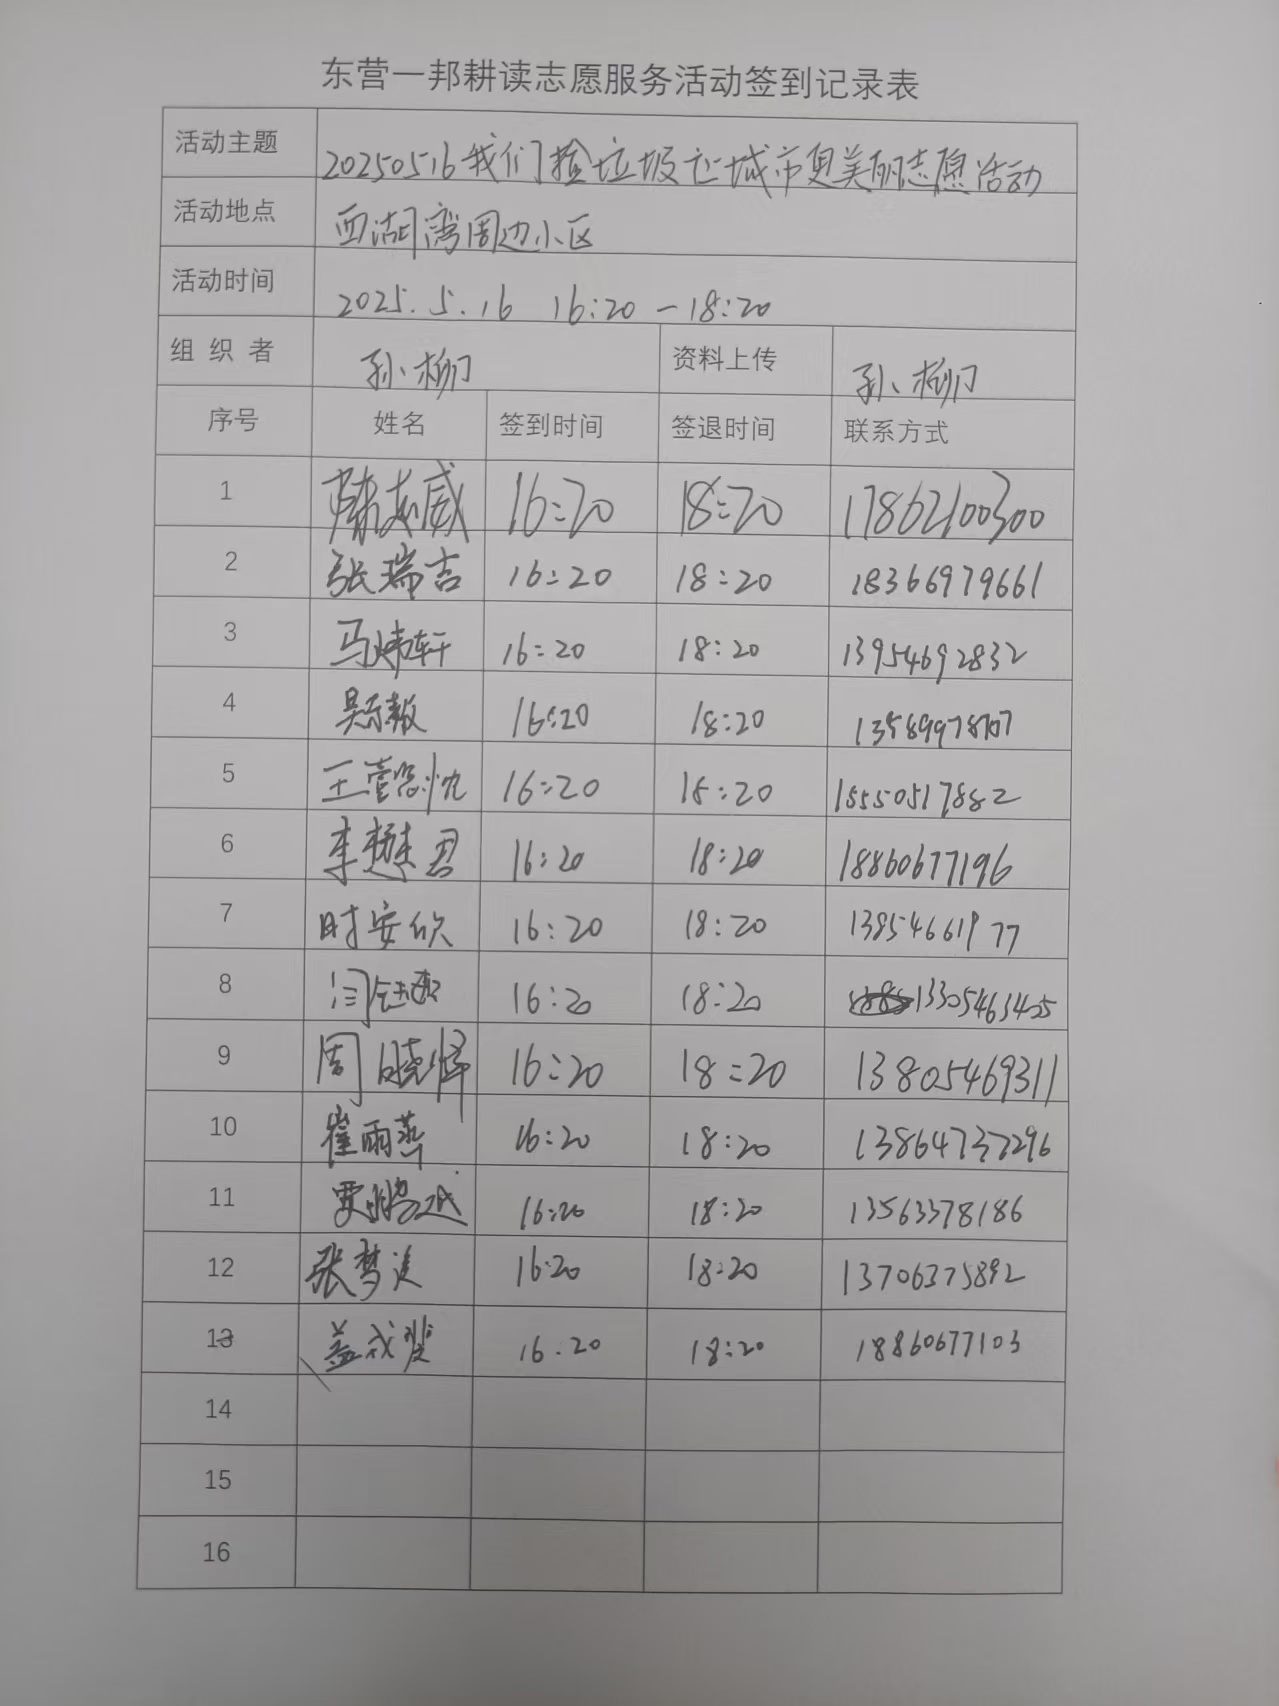 东营一邦耕读志愿服务活动签到记录表
活动主题 20250516我们捡垃圾让城市更美丽志愿活动
活动地点 西湖湾周边小区
活动时间 2025.5.16 16:20—18:20
组织者 孙柳 资料上传 孙柳
序号 姓名 签到时间 签退时间 联系方式
1 威 16:20 18:20 17862100300
2 张瑞吉 16:20 18:20 18366979661
3 马炜轩 16:20 18:20 13954692832
4 16:20 18:20
5 王 16:20 18:20 15550517882
6 李懋君 16:20 18:20 18860677196
7 时安欣 16:20 18:20 13854661977
8 闫钰 16:20 18:20 13305463405
9 周晓烨 16:20 18:20 13805469311
10 崔雨燕 16:20 18:20 13864737296
11 贾鹏 16:20 18:20 13563378186
12 张梦 16:20 18:20 13706375892
13 盖成 16.20 18:20 18860677103
14
15
16